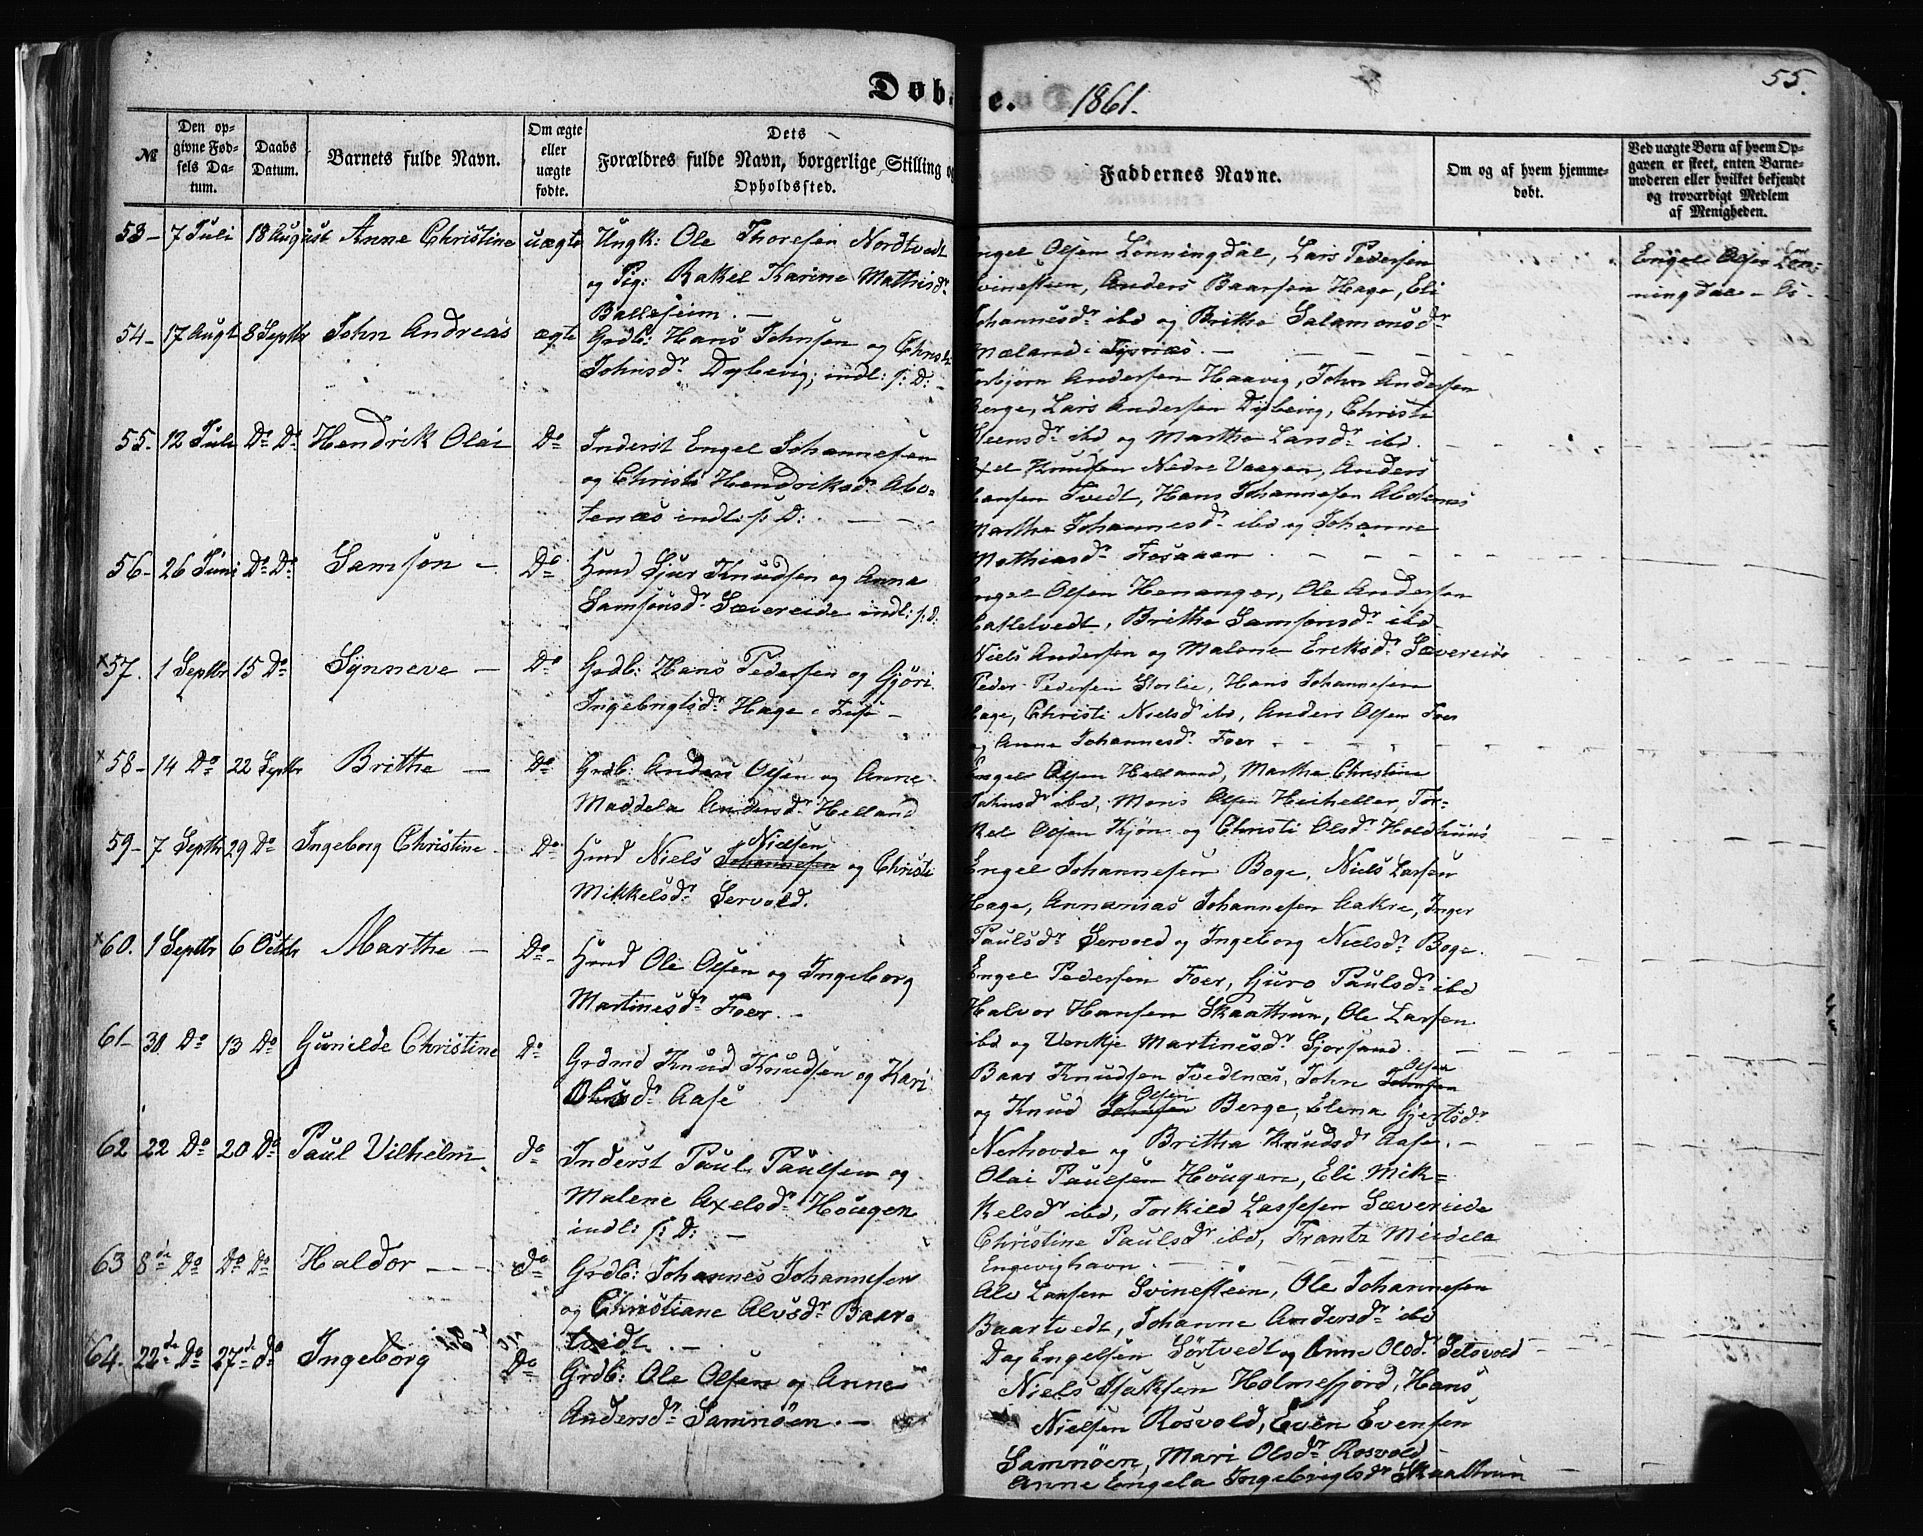 55.
Døbte. 1861.
№
Den opgivne Fødsels Datum.
Daabs Datum.
Barnets fulde Navn.
Om ægte eller uægte fødte.
Dets Forældres fulde Navn, borgerlige Stilling og Opholdssted.
Faddernes Navne.
Om og af hvem hjemmedøbt.
Ved uægte Børn af hvem Opgaven er skeet, enten Barnemoderen eller hvilket bekjendt og troværdigt Medlem af Menigheden.
53 - 7 Juli 18 August Anne Christine uægte Ungk: Ole Thoresen Nordtvedt
og Pig: Rakel Karine Mathisdr
Balleseim. -
ngel Olsen Lønningdal, Lars Pedersen
vinesteen, Anders Baarsen Hage, Eli
Johannesdr ibd og Brithe Salamonsdr
Mæland i Tysnæs. -
Engel Olsen Løn-
ningdal - Os -
54 - 17 Augt 8 Septbr John Andreas ægte Grdb: Hans Johnsen og Christi
Johnsdr Dybevig, indl: s: D: -
orbjørn Andersen Haavig, John Andersen
Berge, Lars Andersen Dybevig, Christi
Steensdr ibd og Marthe Larsdr ibd.
55. 12 Juli Do Do Hendrik Olai Do Inderst Engel Johannesen
og Christi Hendriksdr Abo-
tenæs indl: s: D:
xel Knudsen Nedre Vaagen, Anders
Hansen Tvedt, Hans Johannesen Abotenæs
Marthe Johannesdr ibd og Johanne
Mathiasdr Fosaaen
56 - 26 Juni Do Do Samson - Do Hmd Sjur Knudsen og Anna
Samsonsdr Sævereide indl: s: D:
ngel Olsen Henanger, Ole Andersen
Catlelvedt, Brithe Samsonsdr ibd
Niels Andersen og Malene Eriksdr Sævereide
x57. 1 Septbr 15 Do Synneve - Do Grdb: Hans Pedersen og Gjøri
Ingebrigtsdr Hage i Fuse -
Peder Pedersen Storlie, Hans Johannesen
Hage, Christi Nielsdr ibd, Anders Olsen Foer
og Anne Johannesdr Foer
x58 - 14 Do 22 Septbr Brithe - Do Grdb: Anders Olsen og Anne
Maddela Andersdr Helland
Engel Olsen Helland, Marthe Christine
Johnsdr ibd, Mons Olsen Heiheller, Tor-
kel Olsen Kjøn og Christi Olsdr Holdhuus
59 - 7 Septbr 29 Do Ingeborg Christine - Do Hmd Niels Johannesen Nielsen og Christi
Mikkelsdr Servold.
Engel Johannesen Boge, Niels Larsen
Hage, Annanias Johannesen Aakre, Inger
Paulsdr Servold og Ingeborg Nielsdr Boge.
x60. 1 Septbr 6 Octbr Marthe - Do Hmd Ole Olsen og Ingeborg
Martinesdr Foer. -
Engel Pedersen Foer, Guro Paulsdr ibd
Halvor Hansen Skaathun, Ole Larsen
ibd og Venkje Martinesdr Gjorsand
61 - 30 Do 13 Do Gunilde Christine Do Grdmd Knud Knudsen og Kari
Olsdr Aase
Baar Knudsen Tvedtnæs, John Johnsen Olsen
og Knud Johnsen Olsen Berge, Elena Gjertsdr
Nerhovde og Britha Knudsdr Aase. -
62 22 Do 20 Do Paul Vilhelm do Inderst Paul Paulsen og
Malene Axelsdr Hougen
indl: s: D: -
Olai Paulsen Hougen, Eli Mik-
kelsdr ibd, Torkild Lassesen Sævereide
Christine Paulsdr ibd, Frantz Meidela
Engevighavn.
63 8de Do Do Do Haldor - - Do Grdb: Johannes Johannesen
og Christiane Alvsdr Baar-
tvedt. -
Alv Larsen Svinesteen, Ole Johannesen
Baartvedt, Johanne Andersdr ibd
Dag Engelsen Sørtvedt og Anne Olsdr Setsvold
64. 22de Do 27de do Ingeborg Do Grdb: Ole Olsen og Anne
Andersdr Samnøen. -
Niels Isaksen Holmefjord, Hans
Nielsen Rosvold, Even Evensen
Samnøen, Mari Olsdr Rosvold
Anne Engela Ingebrigtsdr Skaathun